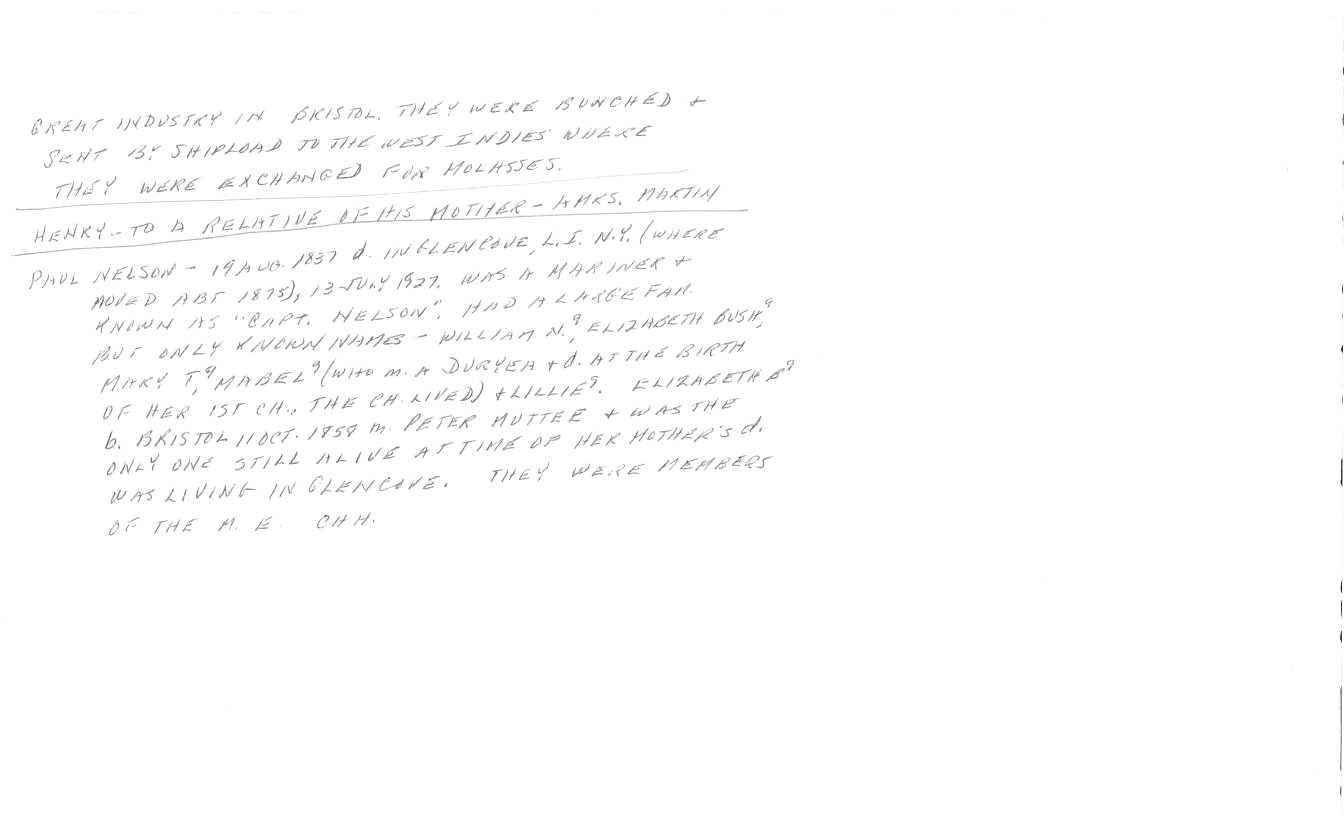 GREAT INDUSTRY IN BRISTOL. THEY WERE BUNCHED +
SENT BY SHIPLOAD TO THE WEST INDIES WHERE
THEY WERE EXCHANGED FOR MOLASSES.
HENRY - TO A RELATIVE OF HIS MOTHER - A MRS. MARTIN
PAUL NELSON - 19 AUG. 1837 d. IN GLENCOVE, L.I. N.Y. (WHERE
MOVED ABT 1875), 13 JULY 1927. WAS A MARINER +
KNOWN AS "CAPT. NELSON". HAD A LARGE FAM.
BUT ONLY KNOWN NAMES - WILLIAM N.⁹, ELIZABETH BUSH⁹,
MARY T,⁹ MABEL⁹ (WHO m. A DURYEA + d. AT THE BIRTH
OF HER 1ST CH., THE CH. LIVED) + LILLIE⁹. ELIZABETH B⁹
b. BRISTOL 11 OCT. 1858 m. PETER MUTTEE + WAS THE
ONLY ONE STILL ALIVE AT TIME OF HER MOTHER'S d.
WAS LIVING IN GLENCOVE. THEY WERE MEMBERS
OF THE M. E. CHH.